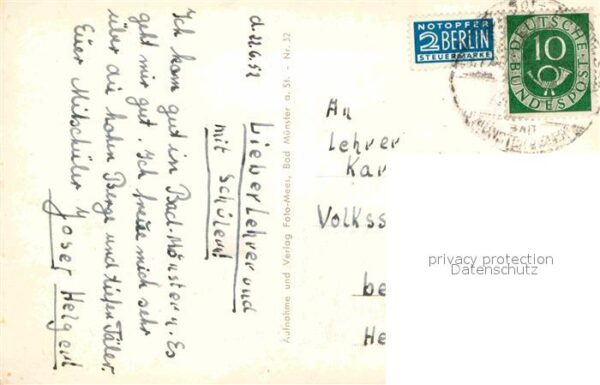 d. 22.6.52
Lieber Lehrer und
mit Schülern!
Ich kam gut in Bad-Münster n. Es
geht mir gut. Ich freue mich sehr
über die hohen Berge und tiefen Täler.
Euer Mitschüler
Josef Helgert
Aufnahme und Verlag Foto-Mees, Bad Münster a. St. - Nr. 52
NOTOPFER
2 BERLIN
STEUERMARKE
DEUTSCHE
10
BUNDESPOST
BAD
An
Lehrer
Kar
Volkss
be
He
privacy protection
Datenschutz